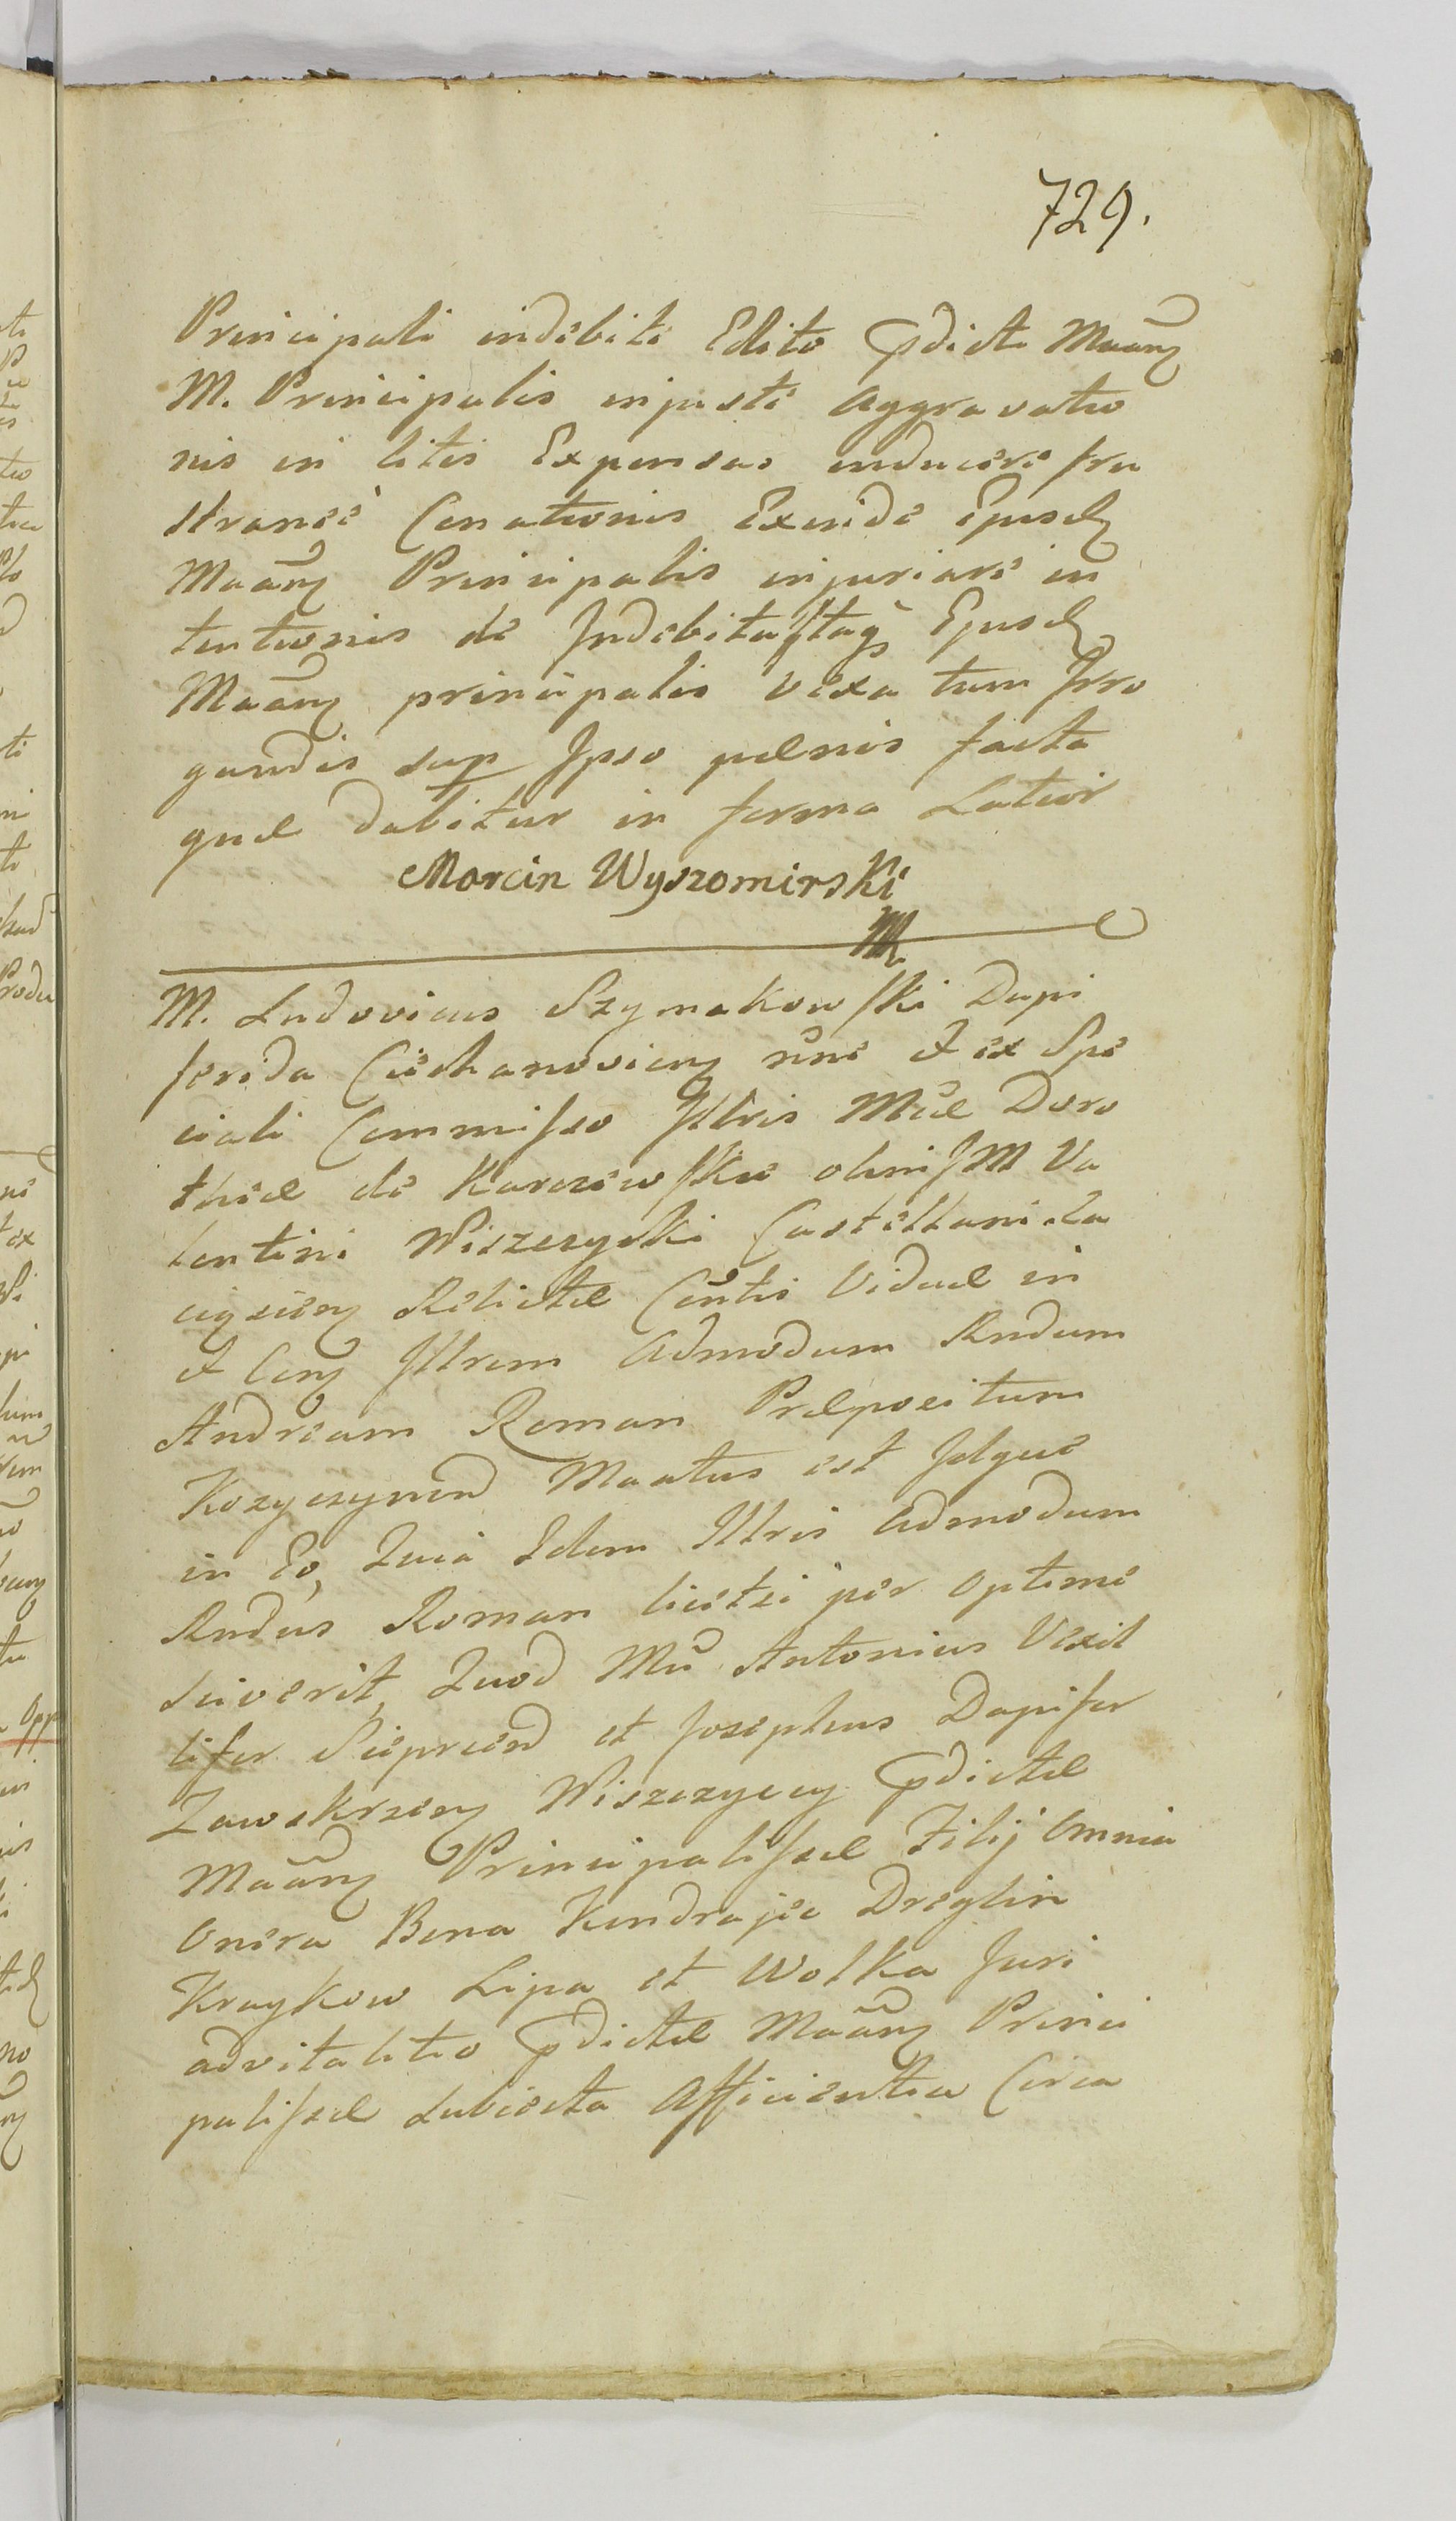 729.
Principali indebite Edito pdicti Maãnꝫ
M. Principalis injuste aggravatio
nis in litis Expensas inducere fru
straneè Conationis Exinde Ejusdꝫ
Maãnꝫ Principalis injuriare in
tentionis de Indebitaqꝫ Ejusdꝫ
Maãnꝫ principalis vexa tum Irro
gandis sup Ipso pœnis facta
quæ dabitur in forma Latior
Marcin Wyszomirski
M. Ludovicus Szymakowski Dapi
ferida Ciechanoviens nõne & ex Spe
ciali Commisso Illris Mcæ Doro
theæ de Karczewskie olim M Va
lentini Wiszczycki Castellani Ra
ciąziens Relictæ Cõntis Viduæ in
& Cons Illrem admodum Rndum
Andream Roman Præpositum
Kozyczynend Maatus est Idque
in Eo, Quia Idem Illris admodum
Rndus Roman licetsi per optime
sciverit, Quod Mci Antonius Vexil
lifer Sieprcend et Josephus Dapifer
Zawskrzens Wiszczyccy pdictæ
Maãnꝫ Principalissæ Filij omnia
onera Bona Kondrajec Dreglin
Kraykow Lipa et Wolka Juri
advitalitio pdictæ Maãnꝫ Princi
palissæ Subiecta afficientia Circa